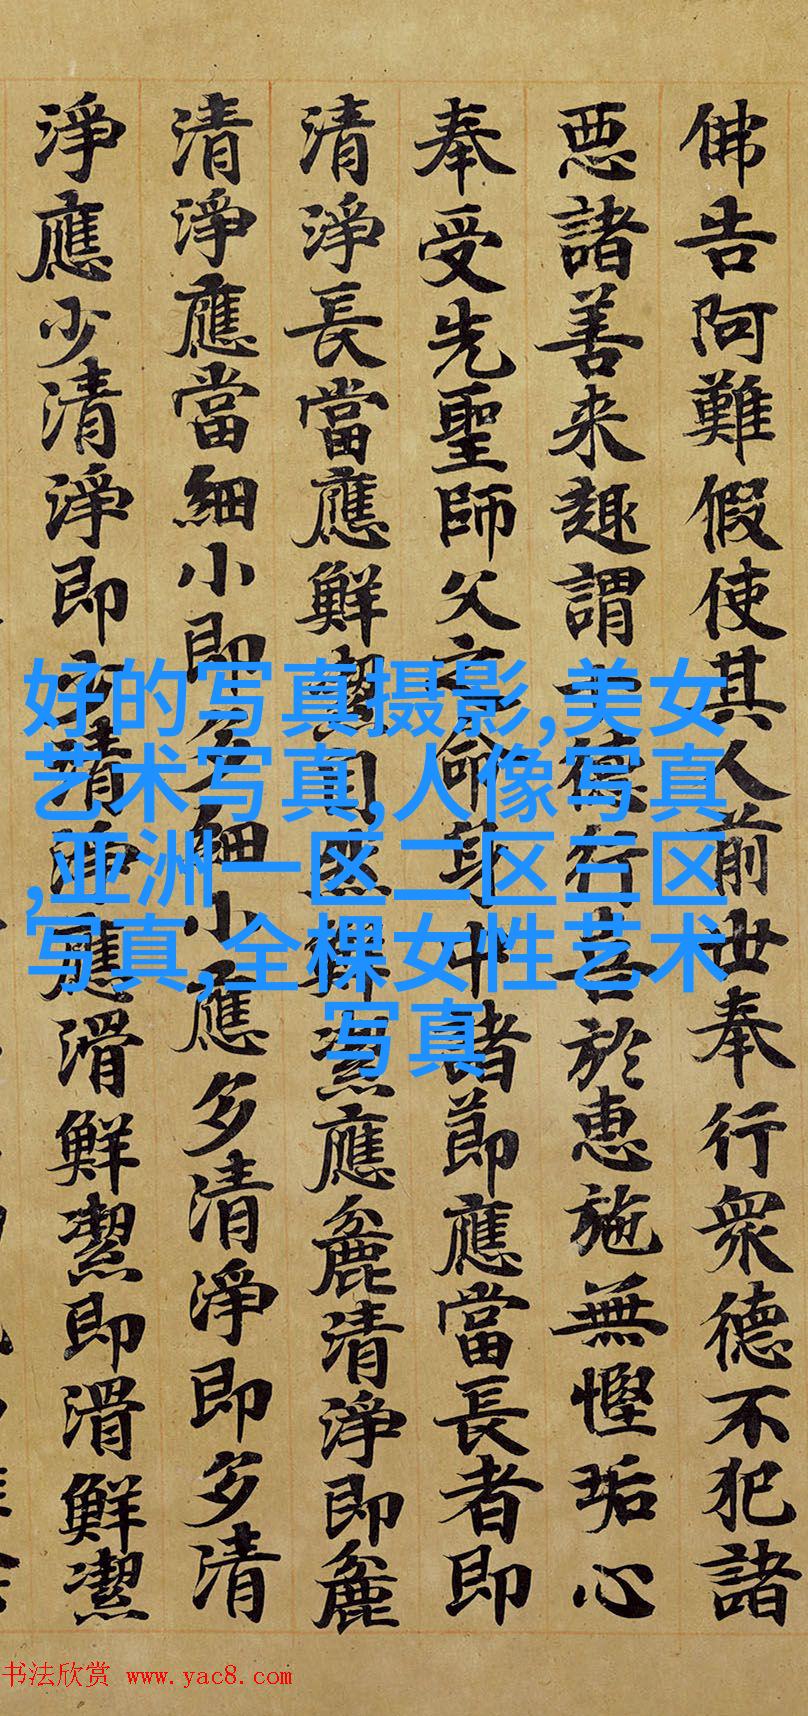 佛告阿難假使其人前世奉行衆德不犯諸
惡諸善来趣謂德行喜於惠施無慳垢心
奉受先聖師父之命身中諸節應當長者即
清淨長當應鮮潔即應麁清淨即麁
清淨應當細小即多細小應多清淨即多清
淨應少清淨即少清淨應滑鮮潔即滑鮮潔
好的写真摄影,美女
艺术写真,人像写真
,亚洲一区二区三区
写真,全棵女性艺术
写真
书法欣赏 www.yac8.com